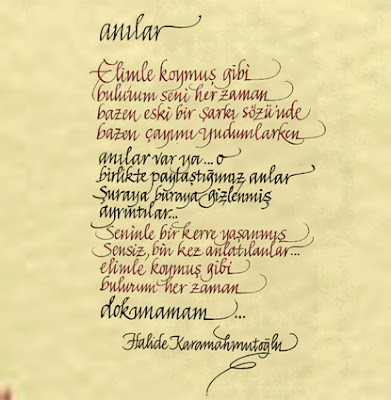 anılar
Elimle koymuş gibi
bulurum seni her zaman
bazen eski bir şarkı sözü'nde
bazen çayımı yudumlarken
anılar var ya... o
birlikte paylaştığımız anlar
Şuraya buraya gizlenmiş
ayrıntılar...
Seninle bir kerre yaşanmış
Sensiz, bin kez anlatılanlar...
elimle koymuş gibi
bulurum her zaman
dokunamam ...
Halide Karamahmutoğlu